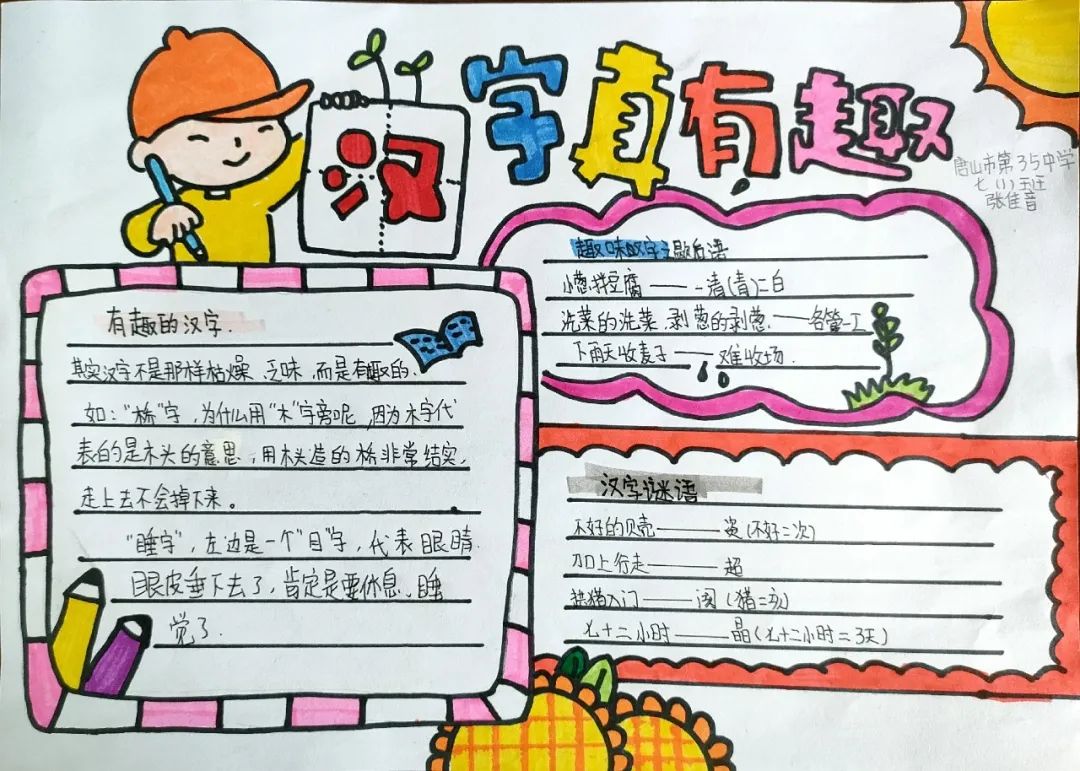 汉字真有趣
唐山市第35中学
七(1)班
张佳音
有趣的汉字.
其实汉字不是那样枯燥、乏味,而是有趣的.
如:"桥"字,为什么用"木"字旁呢,因为木字代
表的是木头的意思,用木头造的桥非常结实,
走上去不会掉下来。
"睡字",左边是一个"目"字,代表眼睛.
眼皮垂下去了,肯定是要休息、睡
觉了.
趣味汉字之歇后语
小葱拌豆腐——一清(青)二白
洗菜的洗菜.剥葱的剥葱.——各管一工
下雨天收麦子——难收场.
汉字谜语
不好的贝壳——资(不好=次)
加上行走——超
拱猪入门——阂(猪=亥)
七十二小时——晶(七十二小时=3天)